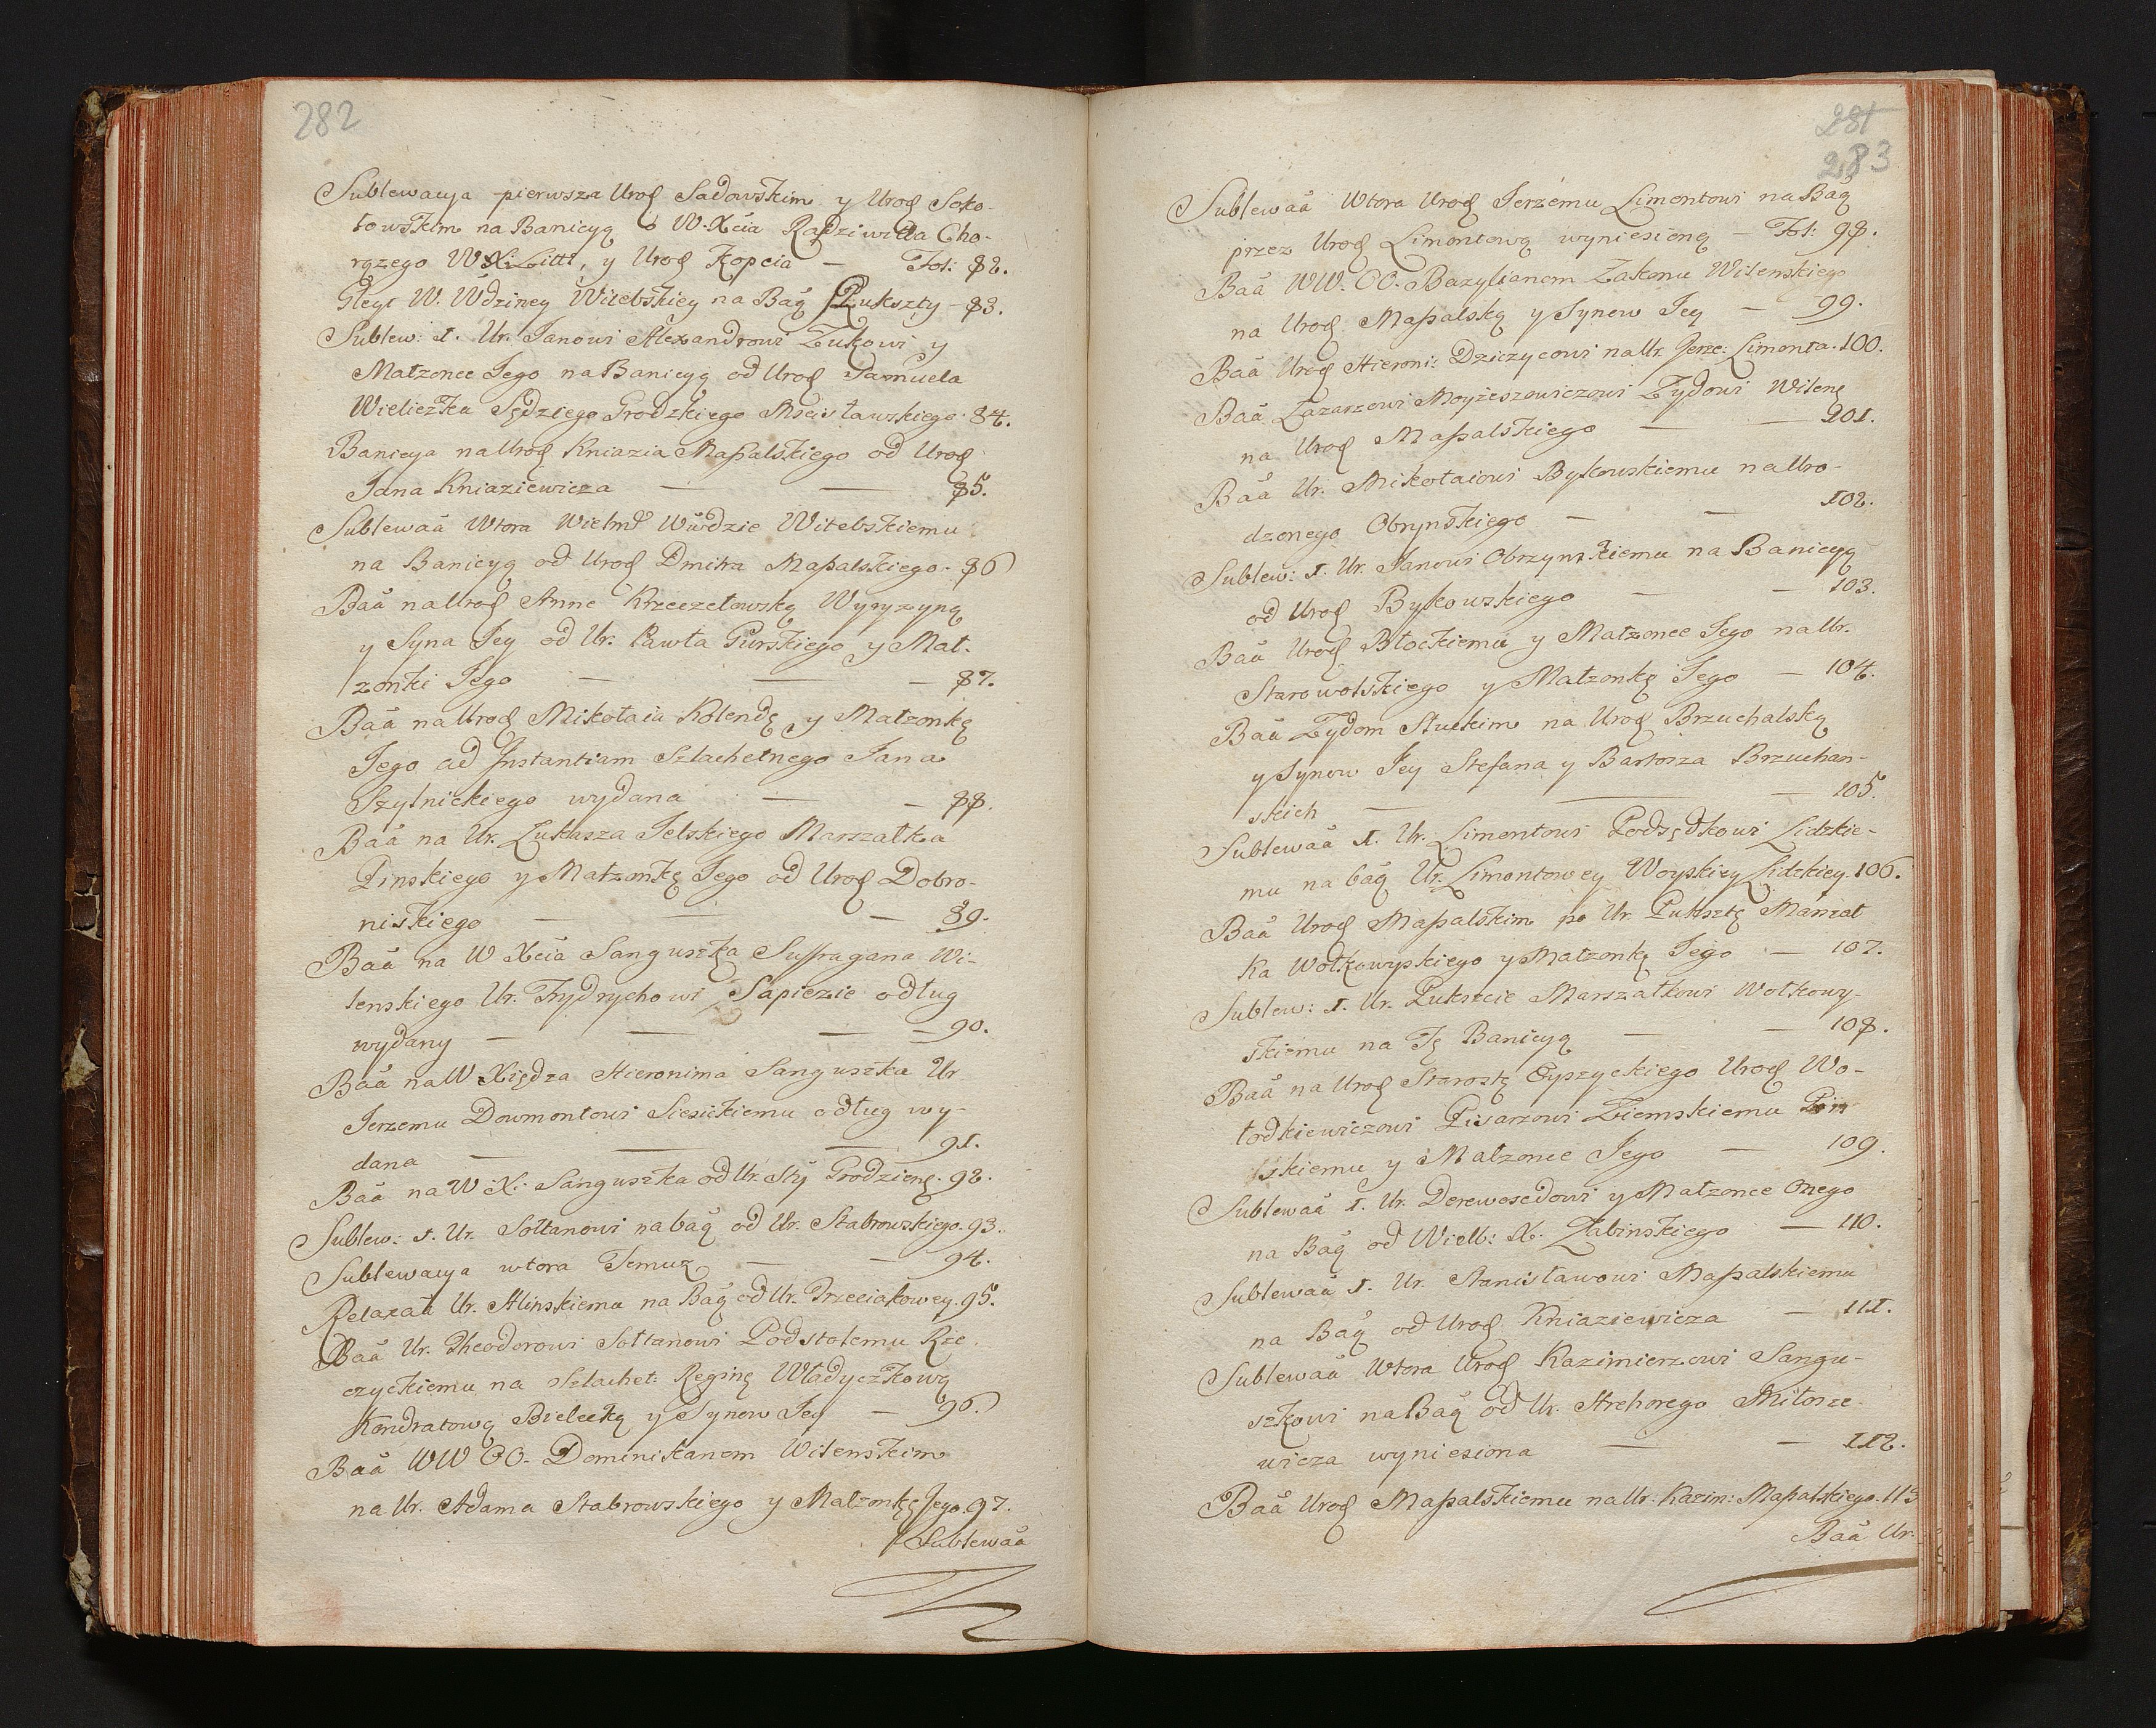 282
Sublewacya pierwsza Urod Sadowskim y Urod Soko-
łowskim na Banicyą o W. Xcia Radziwiłła Cho-
rązego WX. Litt, y Urod Kopcia — Fol: 82.
Gleyt W. Wdziney Witebskiey na Baą Pukszty - 83.
Sublew: 1. Ur. Janowi Alexandrowi Zukowi y
Małzonce Jego na Banicyą od Urod Samuela
Wieliczka Sędziego Grodzkiego Mscisławskiego. 84.
Banicya na Urod Kniazia Maßalskiego od Urod
Jana Kniaziewicza — — 85.
Sublewaã Wtora Wielmo Wwdzie Witebskiemu
na Banicyą od Urod Dmitra Maßalskiego. 86
Baã na Urod Anne Krzeczetowską Wyzyzyną
y Syna Jey od Ur. Pawła Gurskiego y Mał-
zonki Jego — — — 87.
Baã na Urod Mikołaia Kolendę y Małzonkę
Jego ad Instantiam Szlachetnego Jana
Szylnickiego wydana — — 88.
Baã na Ur. Łukasza Jelskiego Marszałka
Pinskiego y Małzonkę Jego od Urod Dobro-
niskiego — — — 89.
Baã na W Xcia Sanguszka Suffragana Wi-
lenskiego Ur. Frydrychowi Sapiezie odług
wydany — — — 90.
Baã na W Xiędza Hieronima Sanguszka Ur
Jerzemu Dowmontowi Siesickiemu odług wy-
dana — — — 91.
Baã na W X: Sanguszka od Ur. Sty Grodzieng. 92.
Sublew: 1. Ur. Sołtanowi na baą od Ur. Stabrowskiego. 93.
Sublewacya wtora Temuz — — 94.
Relaxaã Ur. Alinskiemu na Baą od Ur. Trzeciakowey. 95.
Baã Ur. Theodorowi Sołtanowi Podstolemu Rze-
czyckiemu na Szlachet: Reginę Władyczkową
Kondratową Bielecką y Synow Jey — 96.
Baã WW OO. Dominikanom Wilenskim
na Ur. Adama Stabrowskiego y Małzonkę Jego. 97.
Sublewaã
281
283
Sublewaã Wtora Urod Jerzemu Limontowi na Baą
przez Urod Limontową wyniesioną — Fol: 98.
Baã WW. OO. Bazylianom Zakonu Wilenskiego
na Urod Maßalską y Synow Jey — 99.
Baã Urod Hieroni: Dziczycowi na Ur. Jerze: Limonta. 100.
Baã Łazarzowi Moyżeszowiczowi Zydowi Wileng
na Urod Maßalskiego — — 101.
Baã Ur. Mikołaiowi Bykowskiemu na Uro-
dzonego Obrynskiego — — 102.
Sublew: 1. Ur. Janowi Obrzynskiemu na Banicyą
od Urod Bykowskiego — — 103.
Baã Urod Błockiemu y Małzonce Jego na Ur.
Starowolskiego y Małzonkę Jego — 104.
Baã Zydom Słuckim na Urod Brzuchalską
y Synow Jey Stefana y Bartosza Brzuchan-
skich — — — 105.
Sublewaã 1. Ur. Limontowi Podsędkowi Lidzkie-
mu na baą Ur. Limontowey Woyskiey Lidzkiey. 106.
Baã Urod Maßalskim po Ur. Pukszte Marszał
ka Wołkowyskiego y Małzonkę Jego — 107.
Sublew: 1. Ur. Pukszcie Marszałkowi Wołkowy-
skiemu na Tę Banicyą — — 108.
Baã na Urod Starostę Eyszyckiego Urod Wo-
łodkiewiczowi Pisarzowi Ziemskiemu Pin
skiemu y Małzonce Jego — 109.
Sublewaã 1. Ur. Derewosedowi y Małzonce Onego
na Baą od Wielb: X. Zabinskiego — 110.
Sublewaã 1. Ur. Stanisławowi Maßalskiemu
na Baą od Urod. Kniaziewicza — 111.
Sublewaã Wtora Urod Kazimierzowi Sangu-
szkowi na Baą od Ur. Hrehorego Milosze-
wicza wyniesiona — — 112.
Baã Urod Maßalskiemu na Ur: Kazim: Maßalskiego. 113
Baã Ur.